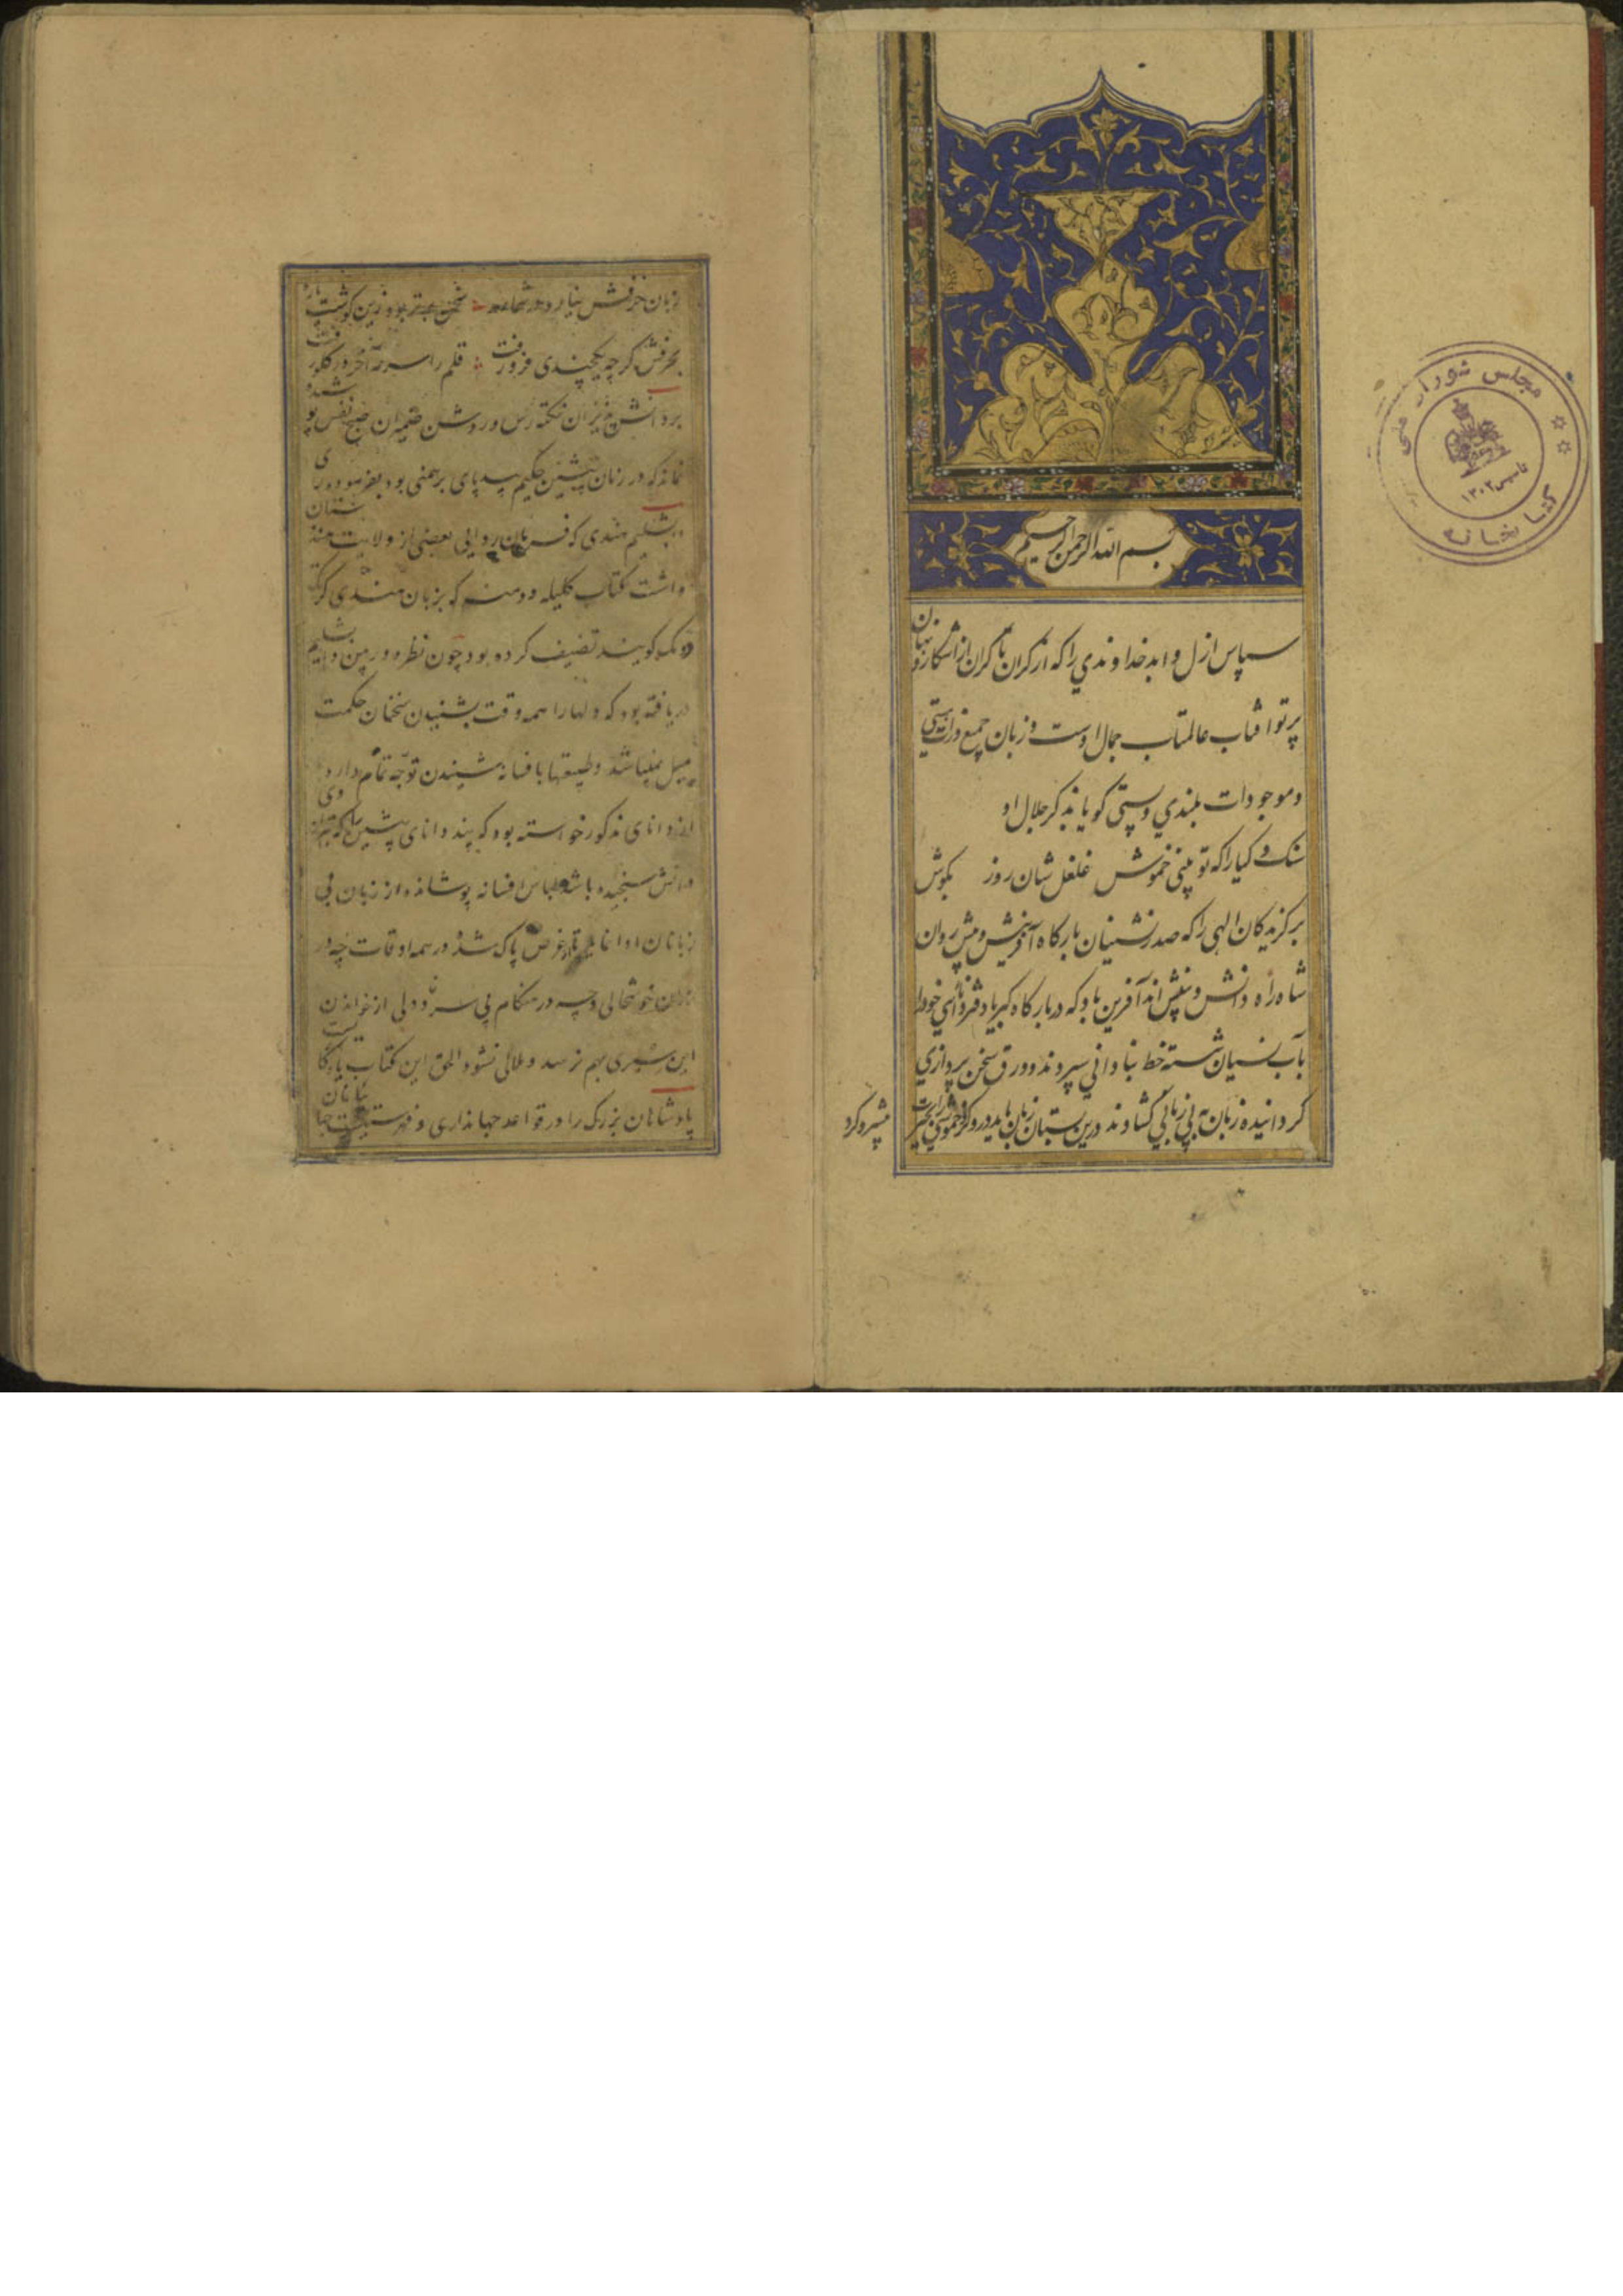 بسم الله الرحمن الرحیم
سپاس ازل و ابد خداوندی را که از کران تا کران از آشکار و نهان
پرتو آفتاب عالمتاب جمال اوست و زبان جمیع ذرات هستی
و موجودات بلندی و پستی کویا بذکر جلال او
سنک و کیا را که تو بینی خموش غلغل شان روز بکوش
برکزیدکان الهی را که صدرنشینان بارکاه آفرینش و پیش روان
شاه راه دانش و بینش اند آفرین باد که در بارکاه کبریا دفتر دانائی خود را
بآب نسیان شسته خط بنادانی سپردند و ورق سخن پردازی
کردانیده زبان به بی زبانی کشادند درین بستان زبان باید درو کرد خموشی را
پیشرو کرد
زبان حرفش نیارد در شماره سخن بهتر بود زین کوشت پاره
بحرفش کرچه یکچندی فرو رفت قلم را سرمه آخر در کلو رفت
بر دانش پژیزان نکته رس و روشن ضمیران صبح نفس پوشیده
نماند که در زمان پیشین حکیم بیدپای برهمنی بود بفرموده رای
دبشلیم هندی که فرمان روایی بعضی از ولایت هندستان
داشت کتاب کلیله و دمنه که بزبان هندی کرتک
و دمنک کویند تصنیف کرده بود چون نظر دوربین دابشلیم
دریافته بود که دلها را همه وقت بشنیدن سخنان حکمت
میل نمیباشد و طبیعتها بافسانه شنیدن توجه تمام دارد
ازو دانای مذکور خواسته بود که پند دانای پیشین را که بترازوی
دانش سنجیده باشد لباس افسانه پوشانده از زبان بی
زبانان ادا نماید تا از غرض پاک شد و در همه اوقات چه در
زمان خوشحالی و چه در هنکام بی سر و دلی از خواندن
این سیری بهم نرسد و ملالی نشود الحق این کتاب یادکاریست
پادشاهان بزرک را در قواعد جهانداری و فهرستیست